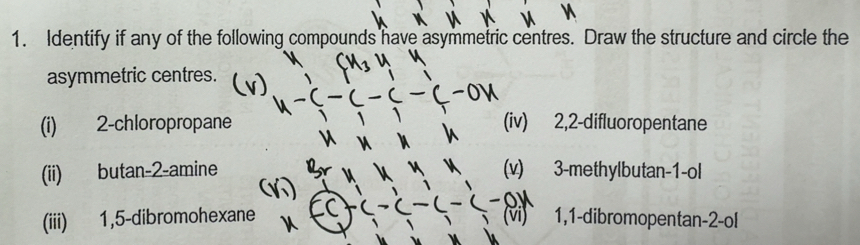 H H H H H H
1. Identify if any of the following compounds have asymmetric centres. Draw the structure and circle the
asymmetric centres.
(v) H CH3 H H
H-C-C-C-C-OH
H H H H
(i) 2-chloropropane
(iv) 2,2-difluoropentane
(ii) butan-2-amine
(v) 3-methylbutan-1-ol
(vi) Br H H H H
H C-C-C-C-C-OH
(iii) 1,5-dibromohexane
(vi) 1,1-dibromopentan-2-ol
H H H H